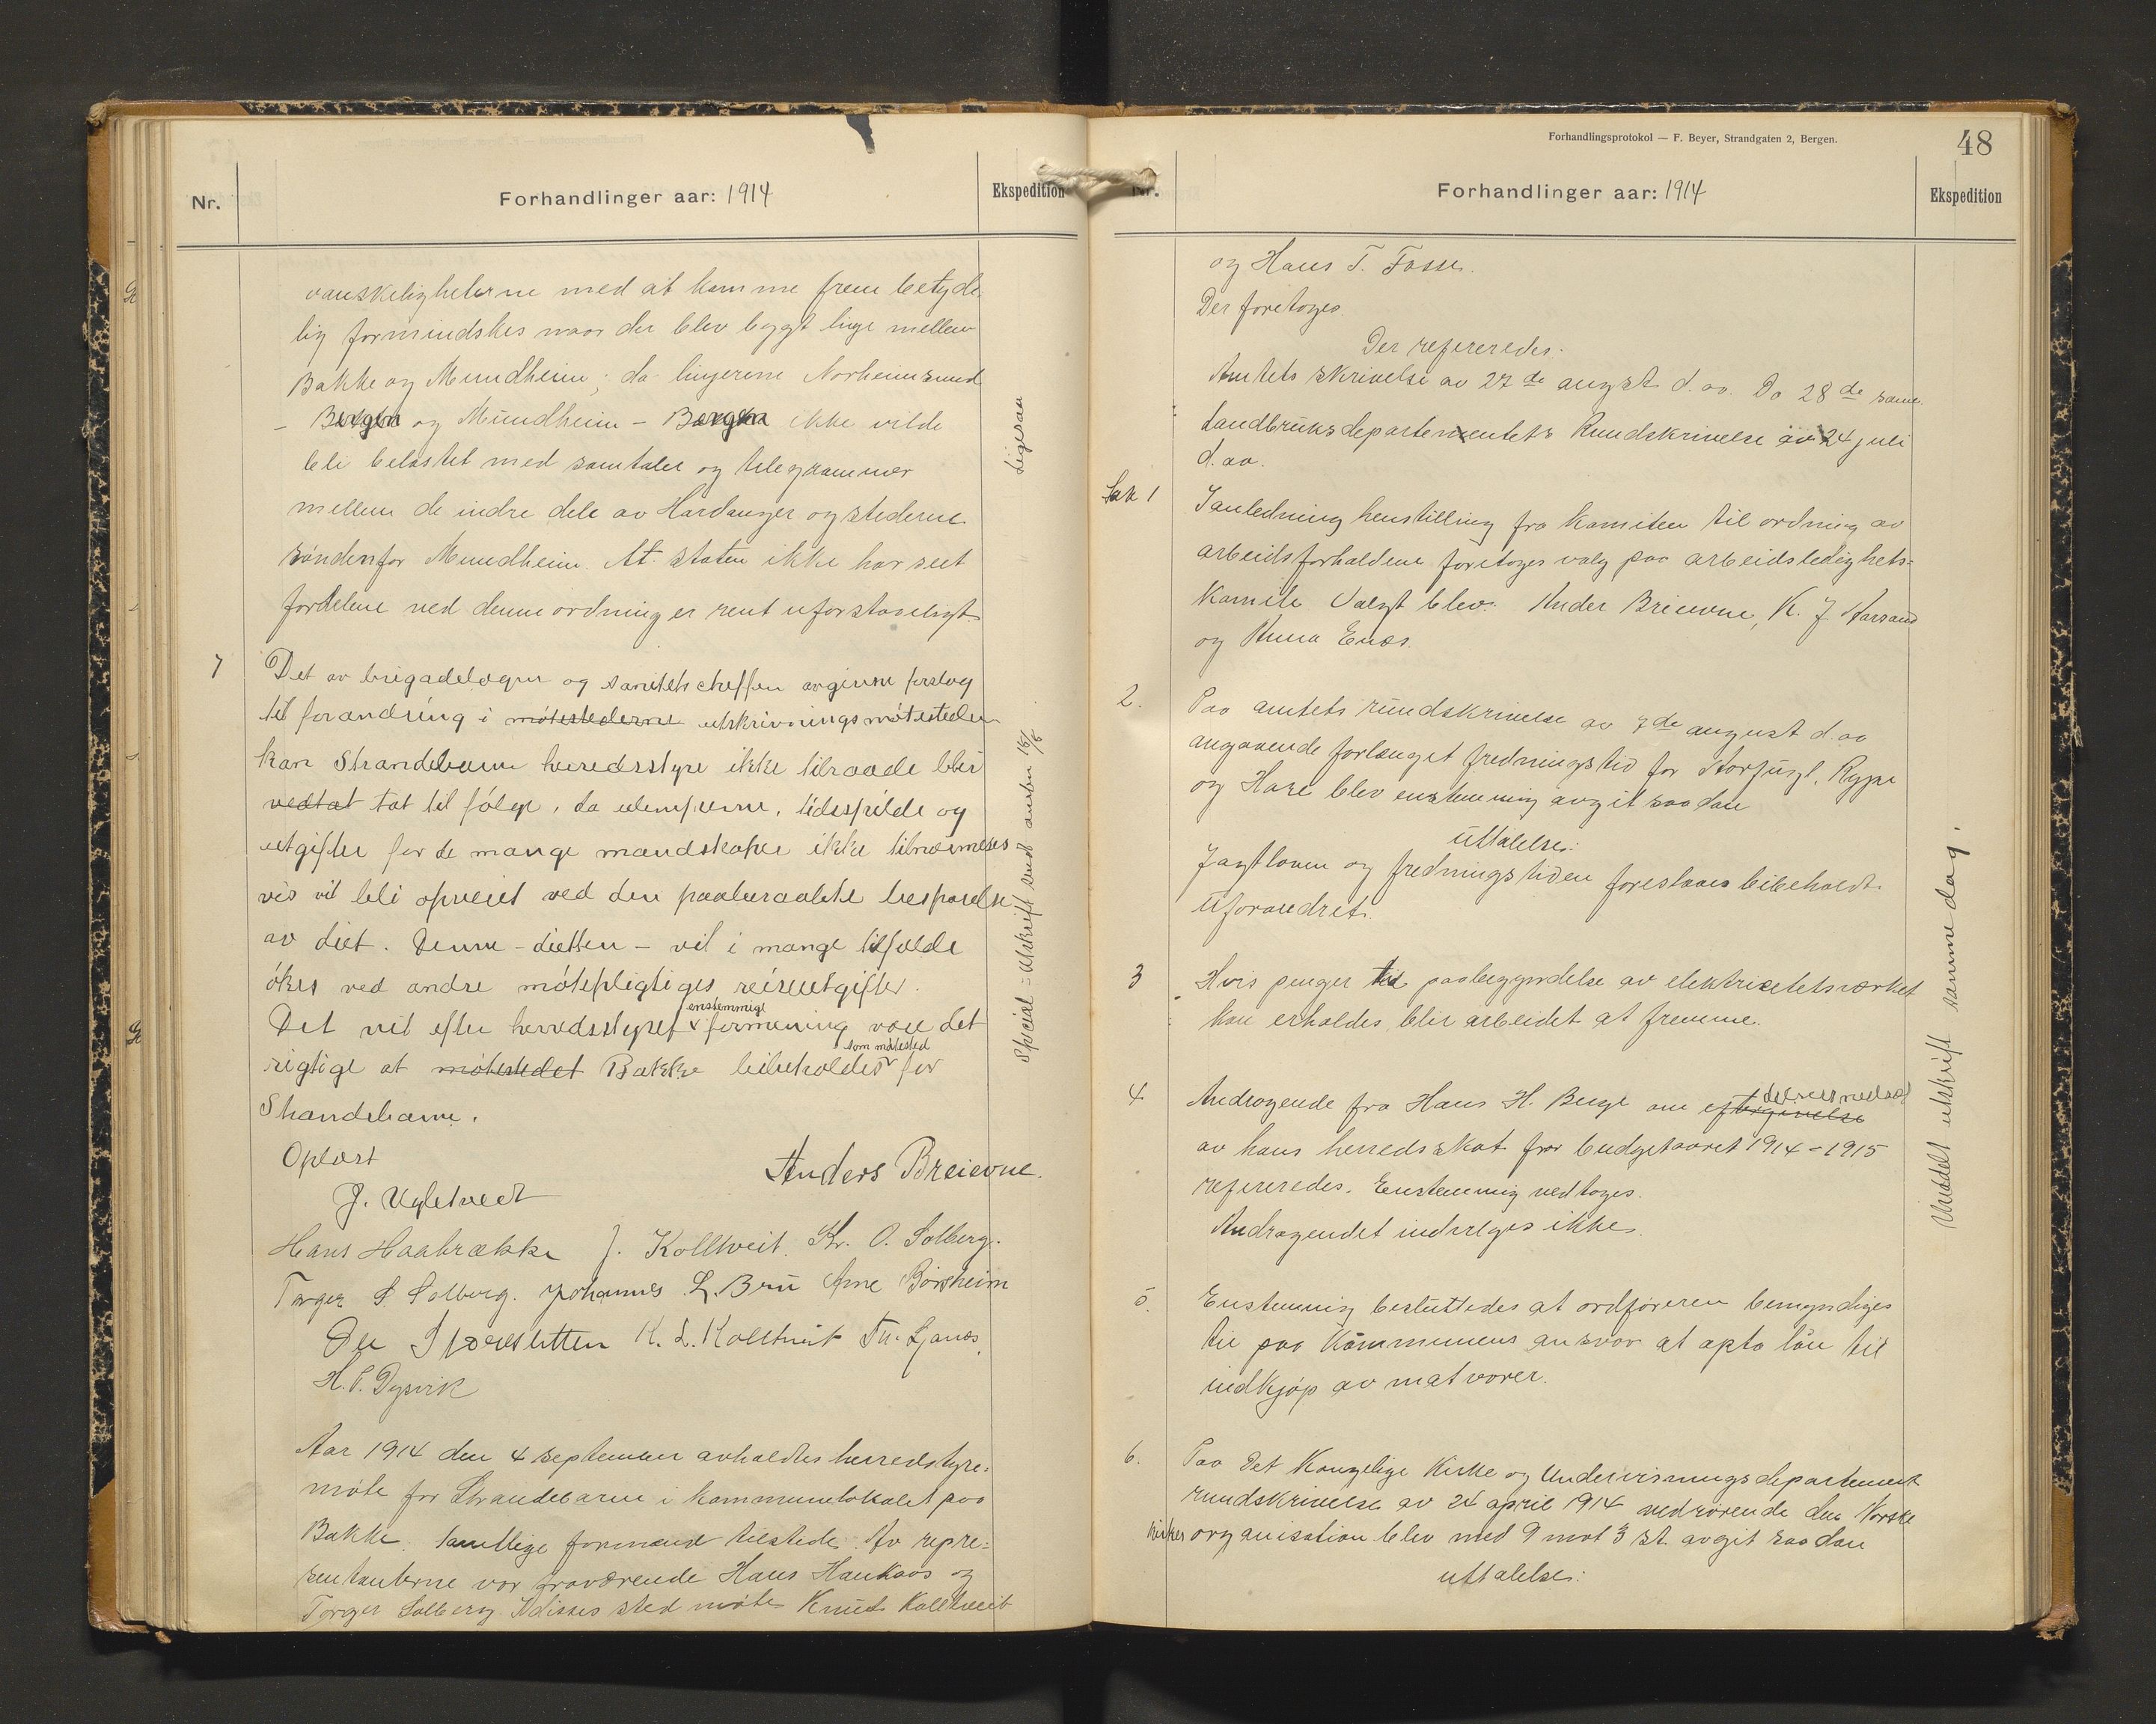 Nr.
Forhandlinger aar: 1914
Ekspedition
vanskelighetene med at komme frem betyde-
lig formindskes naar der blev bygt linje mellem
Bakke og Mundheim, da linjerne Norheimsund
- Bergen og Mundheim - Bergen ikke vilde
bli belastet med samtaler og telegrammer
mellem de indre dele av Hardanger og stederne
søndenfor Mundheim. At staten ikke har seet
fordelene ved denne ordning er rent uforstaaeligt
Ligesaa
7
Det av brigadelægen og sanitetscheffen avgivne forslag
til forandring i møtestederne utskrivningsmøtesteder
kan Strandebarm herredsstyre ikke tilraade blir
vedtat tat til følge, da ulemperne, tidsspilde og
utgifter for de mange mandskaper ikke tilnærmelses
vis vil bli opveiet ved den paaberaabte besparelse
av diet. Denne - dietten - vil i mange tilfælde
økes ved andre møtepligtiges reiseutgifter.
enstemmige
Det vil efter herredsstyret formening være det
som møtested
rigtige at møtestedet Bakke beibeholdes for
Strandebarm.
Special = utskrift sendt amten 15/8
Oplæst
Anders Breievne.
J. Ugletveit
Hans Haabrække J. Kolltveit. Kr. O. Solberg.
Torger S. Solberg. Johannes L. Bru Arne Børsheim
Ole Skoresletten K. L. Kolltveit Th. Ljanes.
H. P. Dysvik
Aar 1914 den 4 september avholdtes herredstyre=
møte for Strandebarm i kommunelokalet paa
Bakke. Samtlige formænd tilstede. Av repre=
sentanterne var fraværende Hans Haukaas og
Torger Solberg I disses sted møtte Knut Kolltveit
Forhandlingsprotokol — F. Beyer, Strandgaten 2, Bergen.
48
Nr.
Forhandlinger aar: 1914
Ekspedition
og Hans T. Fosse.
Der foretoges
Der refereredes:
Amtets skrivelse av 27de august d. aa. Do 28de samme
Landbruksdepartementets Rundskrivelse av 24 juli
d. aa.
Sak 1
I anledning henstilling fra komiteen til ordning av
arbeidsforholdene foretoges valg paa arbeidsledighets=
komite Valgt blev: Ander Breievne, K. J. Aarsand
og Anna Enæs.
2.
Paa amtets rundskrivelse av 7de august d. aa
angaaende forlænget fredningstid for Storfugl, Rype
og Hare blev enstemmig avgit saadan
uttalelse:
Jagtloven og fredningstiden foreslaaes bibeholdt
uforandret.
3
Hvis penger til paabegyndelse av elektricitetsværket
kan erholdes, blir arbeidet at fremme.
4
delvis nedsæt
Andragende fra Hans H. Berge om eftergivelse
av hans herredsskat for budgetaaret 1914-1915
refereredes. Enstemmig vedtoges.
Andragendet indvilges ikke.
5.
Enstemmig besluttedes at ordføreren bemyndiges
til paa kommunens ansvar at opta lån til
indkjøp av matvarer.
6.
Paa Det Kongelige Kirke og Undervisningsdepartement
rundskrivelse av 24 april 1914 vedrørende den Norske
kirkes organisation blev med 9 mot 3 st. avgit saadan
uttalelse:
Meddelt utskrift samme dag.